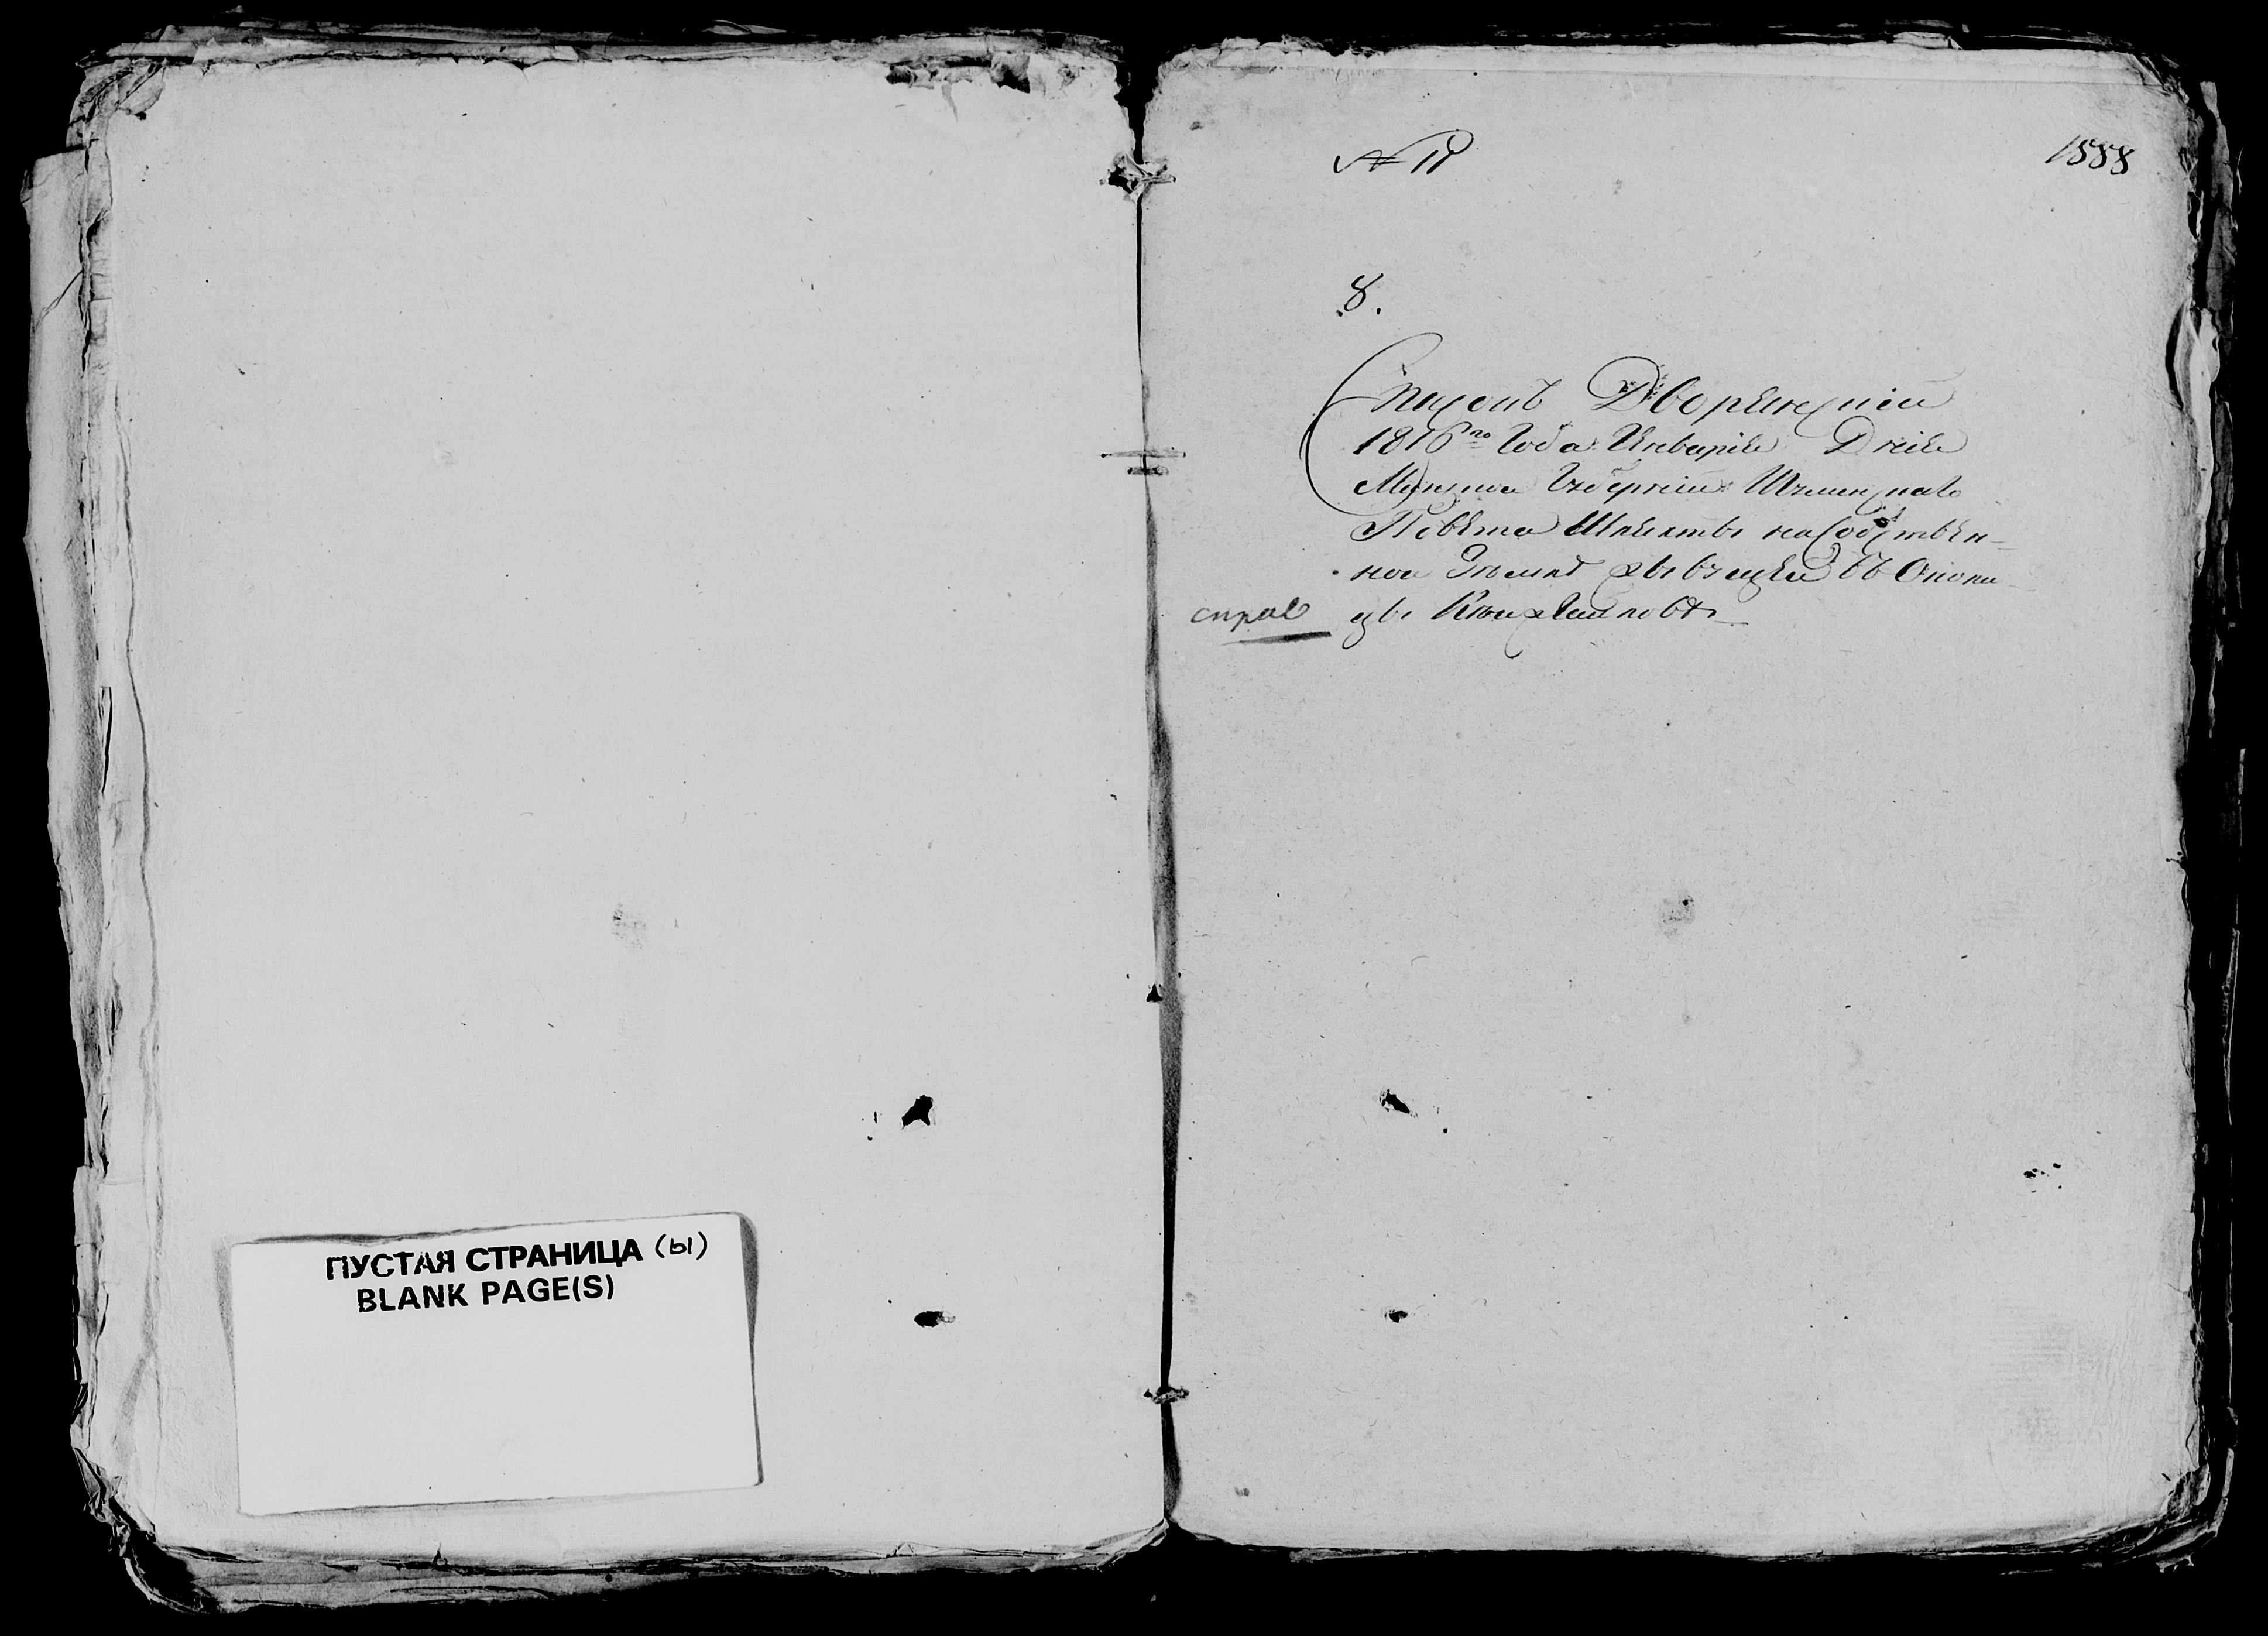 ПУСТАЯ СТРАНИЦА (ы)
BLANK PAGE(S)
№ 11
1888
8.
Списокъ Дворянскій
1816го Года Января Дня
Минской Губерніи Игуменскаго
Повѣта Шляхты на Собствен-
ной Землѣ живущей въ Околи
цы